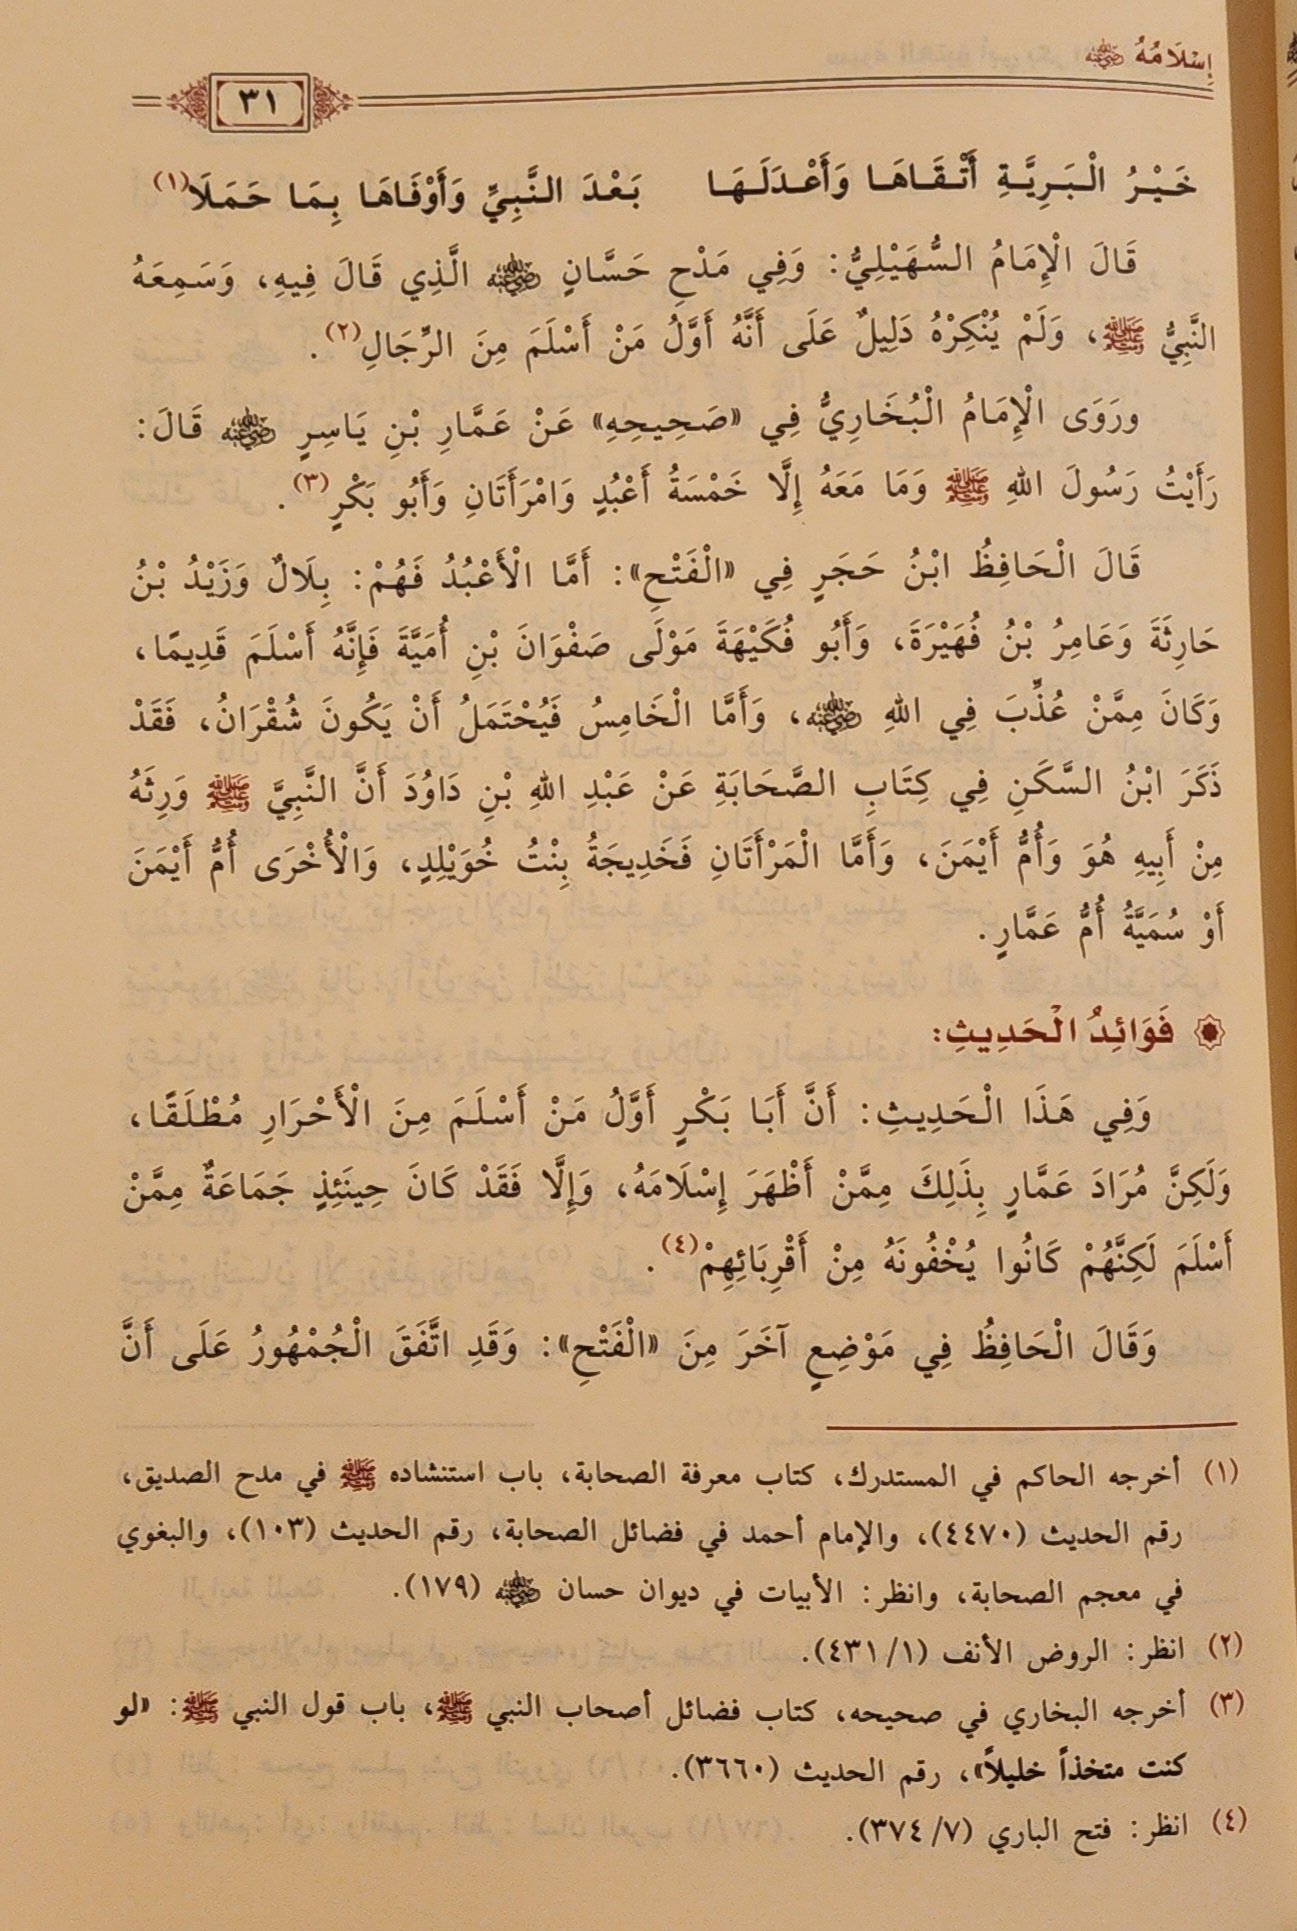 إِسْلَامُهُ ﵁
٣١
خَيْرُ الْبَرِيَّةِ أَتْقَاهَا وَأَعْدَلَهَا بَعْدَ النَّبِيِّ وَأَوْفَاهَا بِمَا حَمَلَا(١)
قَالَ الْإِمَامُ السُّهَيْلِيُّ: وَفِي مَدْحِ حَسَّانٍ ﵁ الَّذِي قَالَ فِيهِ، وَسَمِعَهُ
النَّبِيُّ ﷺ، وَلَمْ يُنْكِرْهُ دَلِيلٌ عَلَى أَنَّهُ أَوَّلُ مَنْ أَسْلَمَ مِنَ الرِّجَالِ(٢).
ورَوَى الْإِمَامُ الْبُخَارِيُّ فِي «صَحِيحِهِ» عَنْ عَمَّارِ بْنِ يَاسِرٍ ﵁ قَالَ:
رَأَيْتُ رَسُولَ اللهِ ﷺ وَمَا مَعَهُ إِلَّا خَمْسَةُ أَعْبُدٍ وَامْرَأَتَانِ وَأَبُو بَكْرٍ(٣).
قَالَ الْحَافِظُ ابْنُ حَجَرٍ فِي «الْفَتْحِ»: أَمَّا الْأَعْبُدُ فَهُمْ: بِلَالٌ وَزَيْدُ بْنُ
حَارِثَةَ وَعَامِرُ بْنُ فُهَيْرَةَ، وَأَبُو فُكَيْهَةَ مَوْلَى صَفْوَانَ بْنِ أُمَيَّةَ فَإِنَّهُ أَسْلَمَ قَدِيمًا،
وَكَانَ مِمَّنْ عُذِّبَ فِي اللهِ ﵁، وَأَمَّا الْخَامِسُ فَيُحْتَمَلُ أَنْ يَكُونَ شُقْرَانُ، فَقَدْ
ذَكَرَ ابْنُ السَّكَنِ فِي كِتَابِ الصَّحَابَةِ عَنْ عَبْدِ اللهِ بْنِ دَاوُدَ أَنَّ النَّبِيَّ ﷺ وَرِثَهُ
مِنْ أَبِيهِ هُوَ وَأُمُّ أَيْمَنَ، وَأَمَّا الْمَرْأَتَانِ فَخَدِيجَةُ بِنْتُ خُوَيْلِدٍ، وَالْأُخْرَى أُمُّ أَيْمَنَ
أَوْ سُمَيَّةُ أُمُّ عَمَّارٍ.
فَوَائِدُ الْحَدِيثِ:
وَفِي هَذَا الْحَدِيثِ: أَنَّ أَبَا بَكْرٍ أَوَّلُ مَنْ أَسْلَمَ مِنَ الْأَحْرَارِ مُطْلَقًا،
وَلَكِنَّ مُرَادَ عَمَّارٍ بِذَلِكَ مِمَّنْ أَظْهَرَ إِسْلَامَهُ، وَإِلَّا فَقَدْ كَانَ حِينَئِذٍ جَمَاعَةٌ مِمَّنْ
أَسْلَمَ لَكِنَّهُمْ كَانُوا يُخْفُونَهُ مِنْ أَقْرِبَائِهِمْ(٤).
وَقَالَ الْحَافِظُ فِي مَوْضِعٍ آخَرَ مِنَ «الْفَتْحِ»: وَقَدِ اتَّفَقَ الْجُمْهُورُ عَلَى أَنَّ
(١) أخرجه الحاكم في المستدرك، كتاب معرفة الصحابة، باب استنشاده ﷺ في مدح الصديق،
رقم الحديث (٤٤٧٠)، والإمام أحمد في فضائل الصحابة، رقم الحديث (١٠٣)، والبغوي
في معجم الصحابة، وانظر: الأبيات في ديوان حسان ﵁ (١٧٩).
(٢) انظر: الروض الأنف (٤٣١/١).
(٣) أخرجه البخاري في صحيحه، كتاب فضائل أصحاب النبي ﷺ، باب قول النبي ﷺ: «لو
كنت متخذاً خليلاً»، رقم الحديث (٣٦٦٠).
(٤) انظر: فتح الباري (٣٧٤/٧).